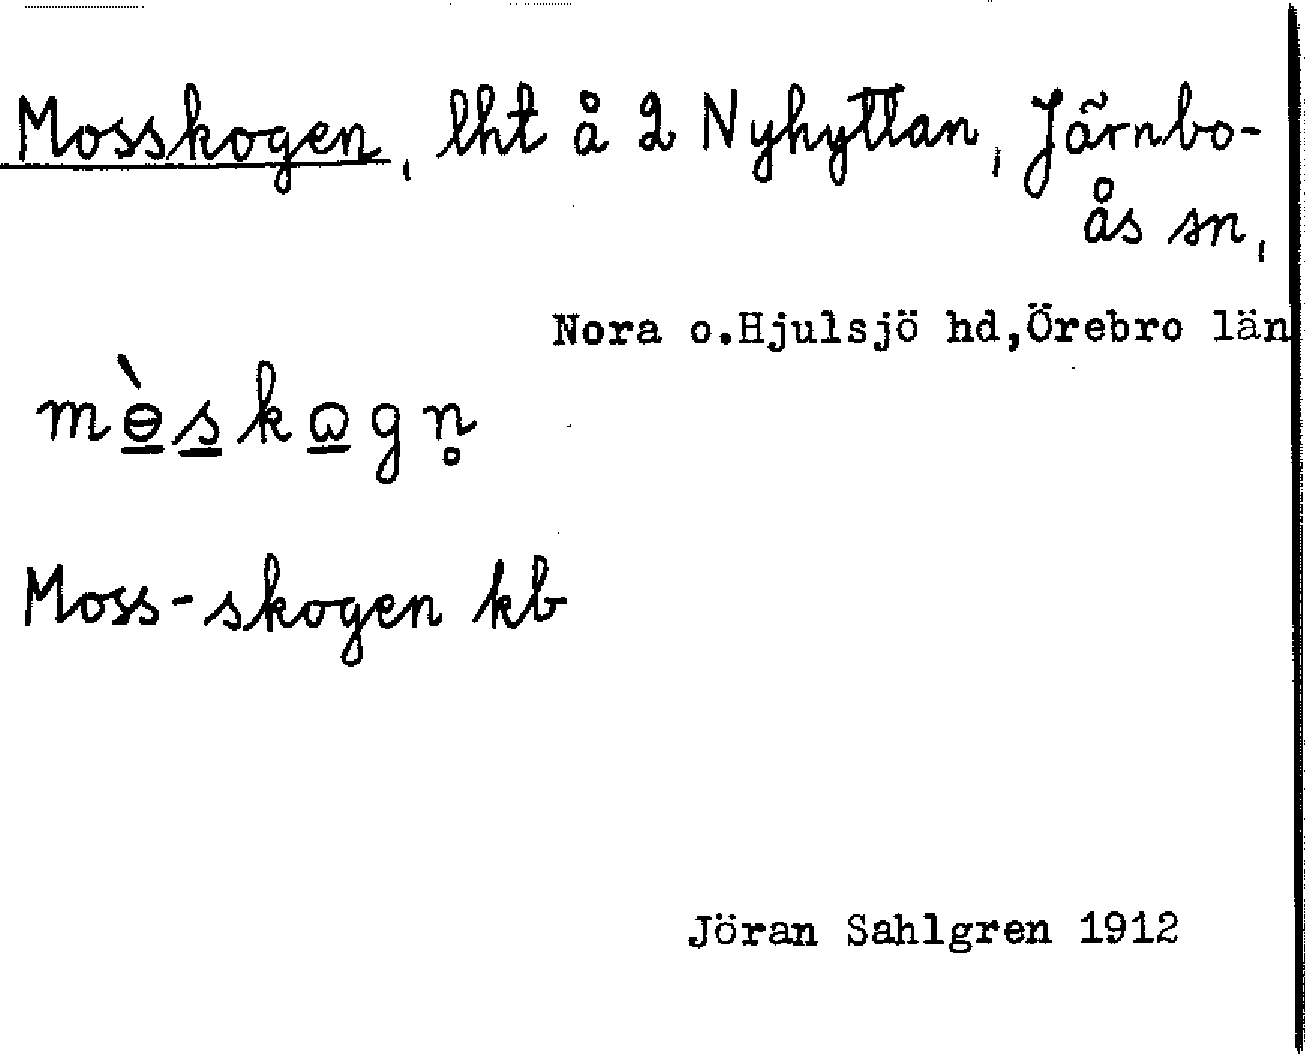 Mosskogen, lht å 2 Nyhyttan, Järnbo-
ås sn,
Nora o.Hjulsjö hd,Örebro län
mɵ̀skɷgn̥
Moss-skogen kb
Jöran Sahlgren 1912